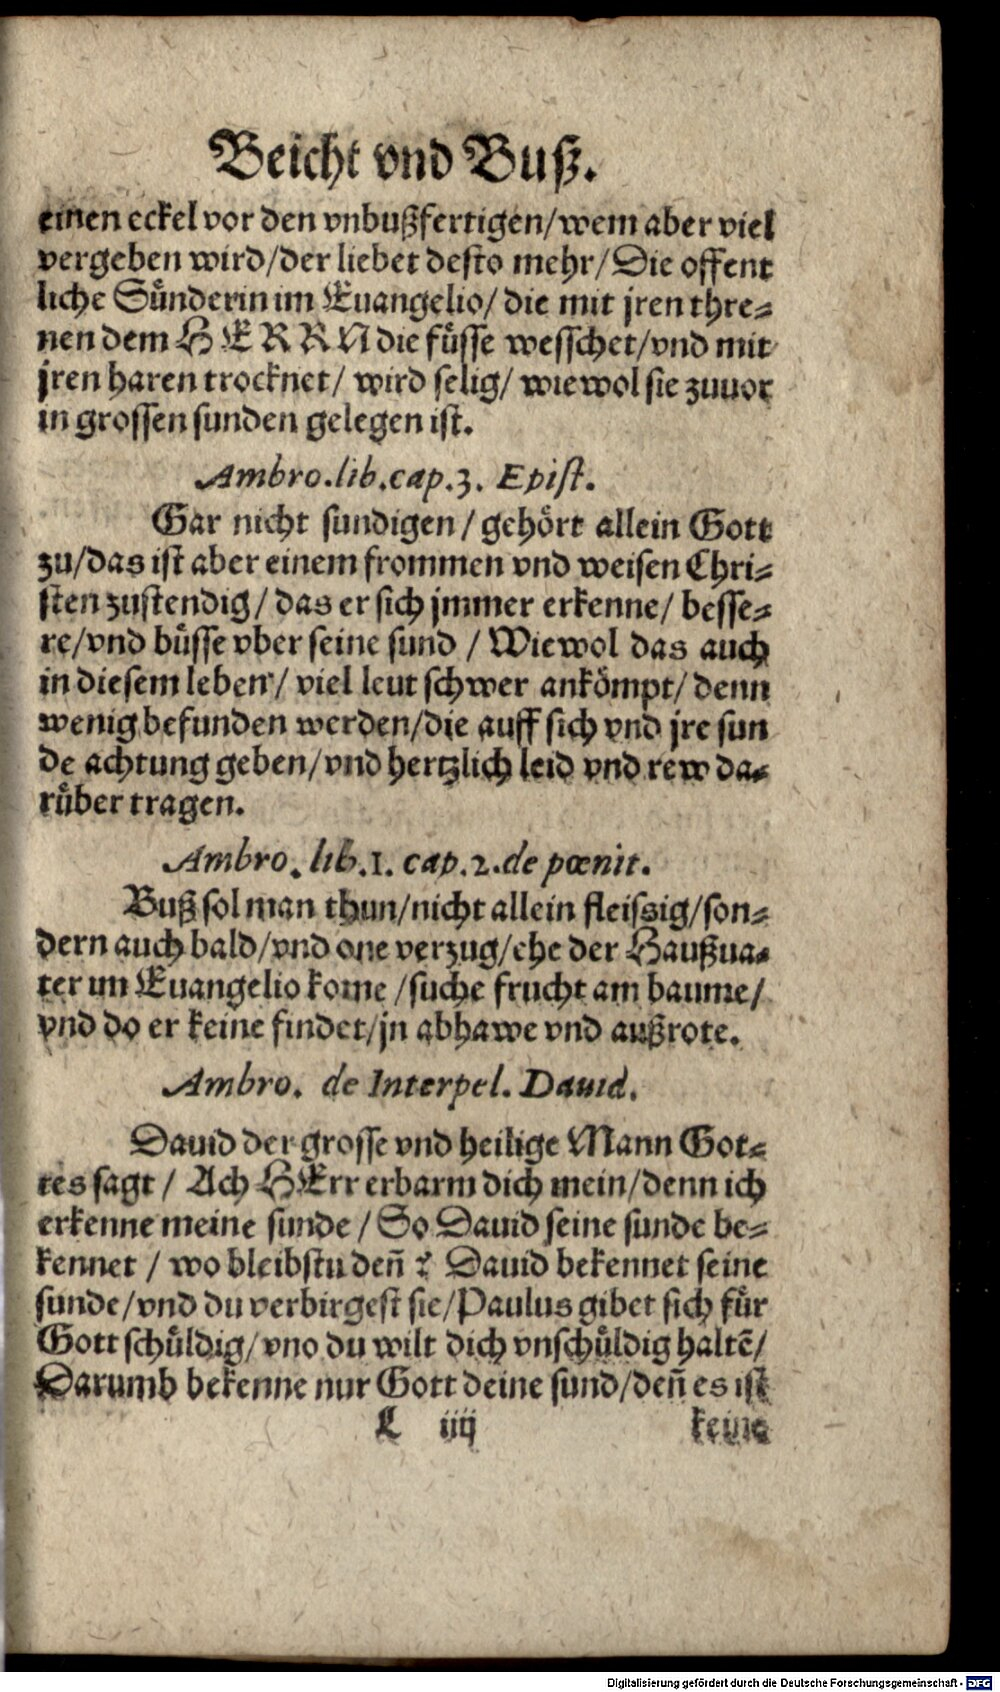 Beicht vnd Buß.
einen eckel vor den vnbußfertigen/wem aber viel
vergeben wird/der liebet desto mehr/Die offent
liche Sünderin im Euangelio/ die mit jren thre-
nen dem HERRN die füsse wesschet/vnd mit
jren haren trocknet/ wird selig/ wiewol sie zuuor
in grossen sunden gelegen ist.
Ambro.lib.cap.3. Epist.
Gar nicht sundigen / gehört allein Gott
zu/das ist aber einem frommen vnd weisen Chri-
sten zustendig / das er sich jmmer erkenne/ besse-
re/vnd büsse vber seine sund / Wiewol das auch
in diesem leben / viel leut schwer ankömpt/ denn
wenig befunden werden/die auff sich vnd jre sun
de achtung geben/vnd hertzlich leid vnd rew da-
rüber tragen.
Ambro. lib.1. cap.2.de pœnit.
Buß sol man thun/nicht allein fleissig/son-
dern auch bald/vnd one verzug/ehe der Haußua-
ter im Euangelio kome /suche frucht am baume/
vnd do er keine findet/jn abhawe vnd außrote.
Ambro. de Interpel. Dauid.
Dauid der grosse vnd heilige Mann Got-
tes sagt / Ach HErr erbarm dich mein/denn ich
erkenne meine sunde / So Dauid seine sunde be-
kennet / wo bleibstu deñ ? Dauid bekennet seine
sunde/vnd du verbirgest sie/Paulus gibet sich für
Gott schüldig/vno du wilt dich vnschüldig haltẽ/
Darumb bekenne nur Gott deine sund/deñ es ist
L iiij keine
Digitalisierung gefördert durch die Deutsche Forschungsgemeinschaft - DFG